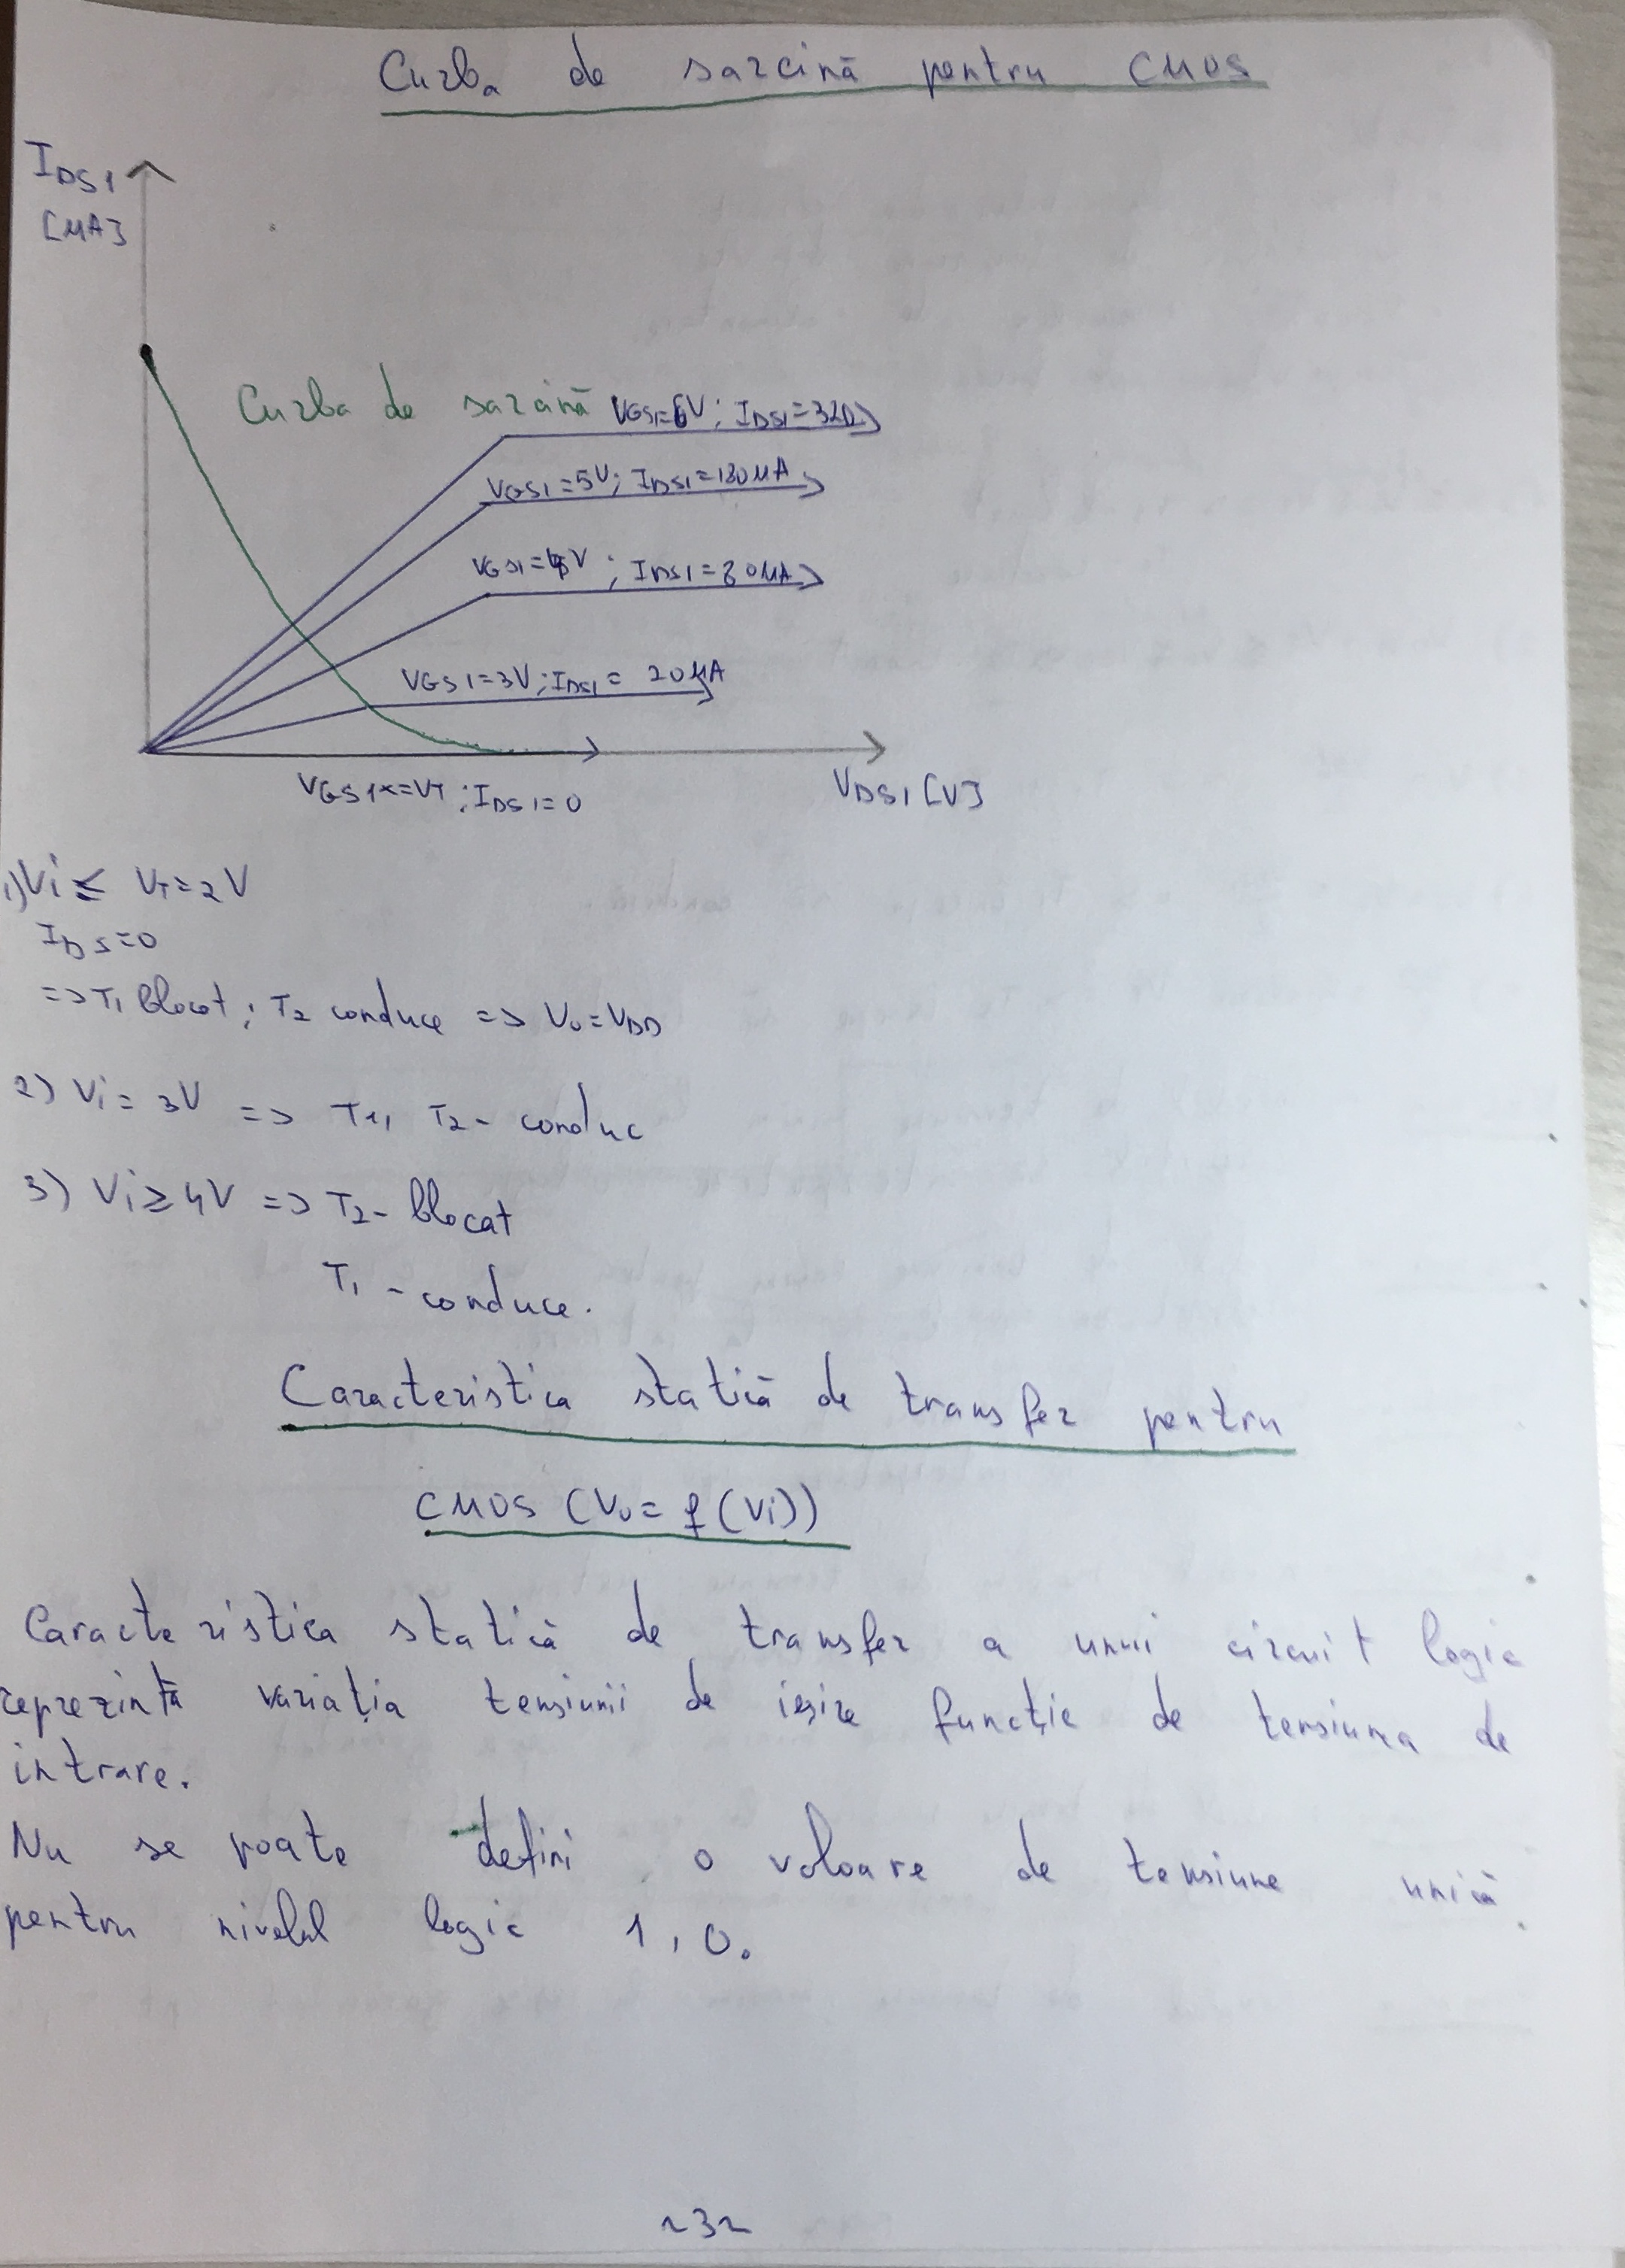 Curba de sarcină pentru CMOS
IDS1
[μA]
Curba de sarcină
VGS1=6V; IDS1=320
VGS1=5V; IDS1=180μA
VGS1=4V; IDS1=80μA
VGS1=3V; IDS1= 20μA
VGS1<=VT; IDS1=0
VDS1 [V]
1) Vi ≤ VT=2V
IDS=0
=> T1 blocat; T2 conduce => Vo=VDD
2) Vi= 3V => T1, T2 - conduc
3) Vi≥4V => T2 - blocat
T1 - conduce.
Caracteristica statică de transfer pentru
CMOS (Vo= f(Vi))
Caracteristica statică de transfer a unui circuit logic
reprezintă variația tensiunii de ieșire funcție de tensiunea de
intrare.
Nu se poate defini o valoare de tensiune unică
pentru nivelul logic 1, 0.
~3~